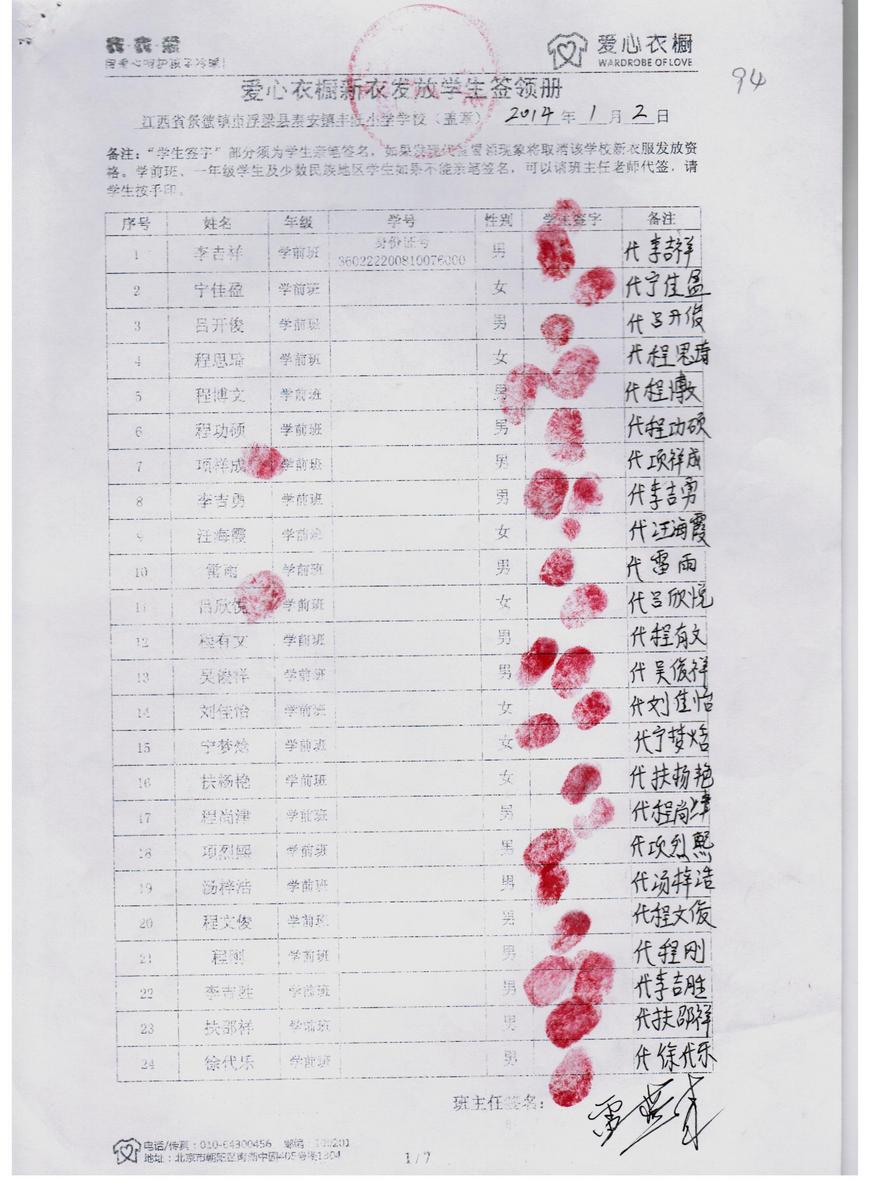 爱心衣橱
WARDROBE OF LOVE
94
爱心衣橱新衣发放学生签领册
江西省景德镇市浮梁县泰安镇丰旺小学学校（盖章） 2014 年 1 月 2 日
备注：“学生签字”部分须为学生亲笔签名，如果发现代签冒领现象将取消该学校新衣服发放资
格。学前班、一年级学生及少数民族地区学生如果不能亲笔签名，可以请班主任老师代签，请
学生按手印。
序号 姓名 年级 学号 性别 学生签字 备注
1 李吉祥 学前班 身份证号 360222200810076000 男 代李吉祥
2 宁佳盈 学前班 女 代宁佳盈
3 吕开俊 学前班 男 代吕开俊
4 程思琦 学前班 女 代程思琦
5 程博文 学前班 男 代程博文
6 程功硕 学前班 男 代程功硕
7 项祥成 学前班 男 代项祥成
8 李吉勇 学前班 男 代李吉勇
9 汪海霞 学前班 女 代汪海霞
10 雷雨 学前班 男 代雷雨
11 吕欣悦 学前班 女 代吕欣悦
12 程有文 学前班 男 代程有文
13 吴俊祥 学前班 男 代吴俊祥
14 刘佳怡 学前班 女 代刘佳怡
15 宁梦焓 学前班 女 代宁梦焓
16 扶杨艳 学前班 女 代扶杨艳
17 程尚津 学前班 男 代程尚津
18 项烈熙 学前班 男 代项烈熙
19 汤梓浩 学前班 男 代汤梓浩
20 程文俊 学前班 男 代程文俊
21 程刚 学前班 男 代程刚
22 李吉胜 学前班 男 代李吉胜
23 扶邵祥 学前班 男 代扶邵祥
24 徐代乐 学前班 男 代徐代乐
班主任签名：
电话/传真：010-64300456 邮编：100201
地址：北京市朝阳区
1/7